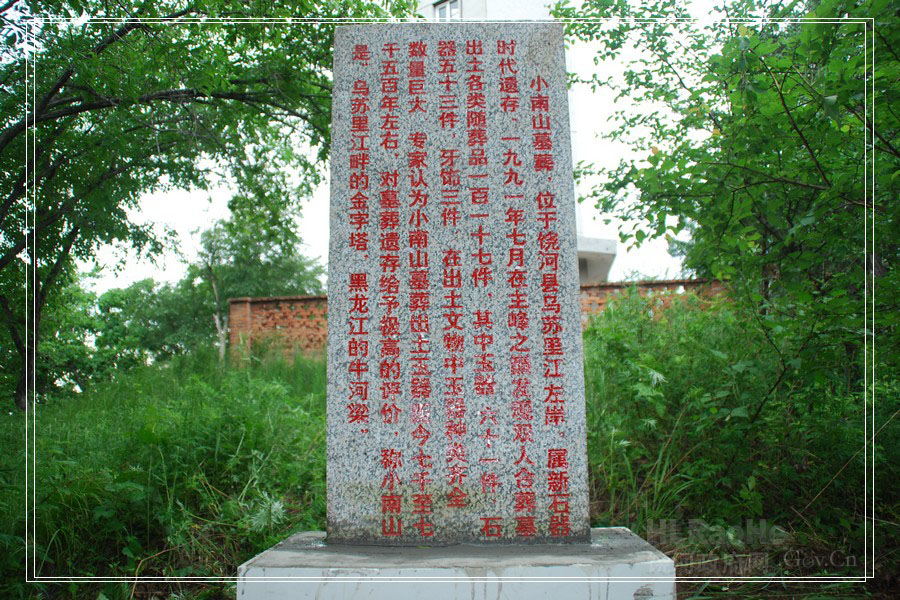 小南山墓葬 位于饶河县乌苏里江左岸。属新石器
时代遗存，一九九一年七月在主峰之巅发现双人合葬墓
出土各类随葬品一百一十七件，其中玉器 六十一件 石
器五十三件 牙饰三件 在出土文物中玉器种类齐全
数量巨大 专家认为小南山墓葬出土玉器距今七千至七
千五百年左右，对墓葬遗存给予极高的评价，称小南山
是“乌苏里江畔的金字塔，黑龙江的牛河梁”
HLRaoHe
.Gov.Cn